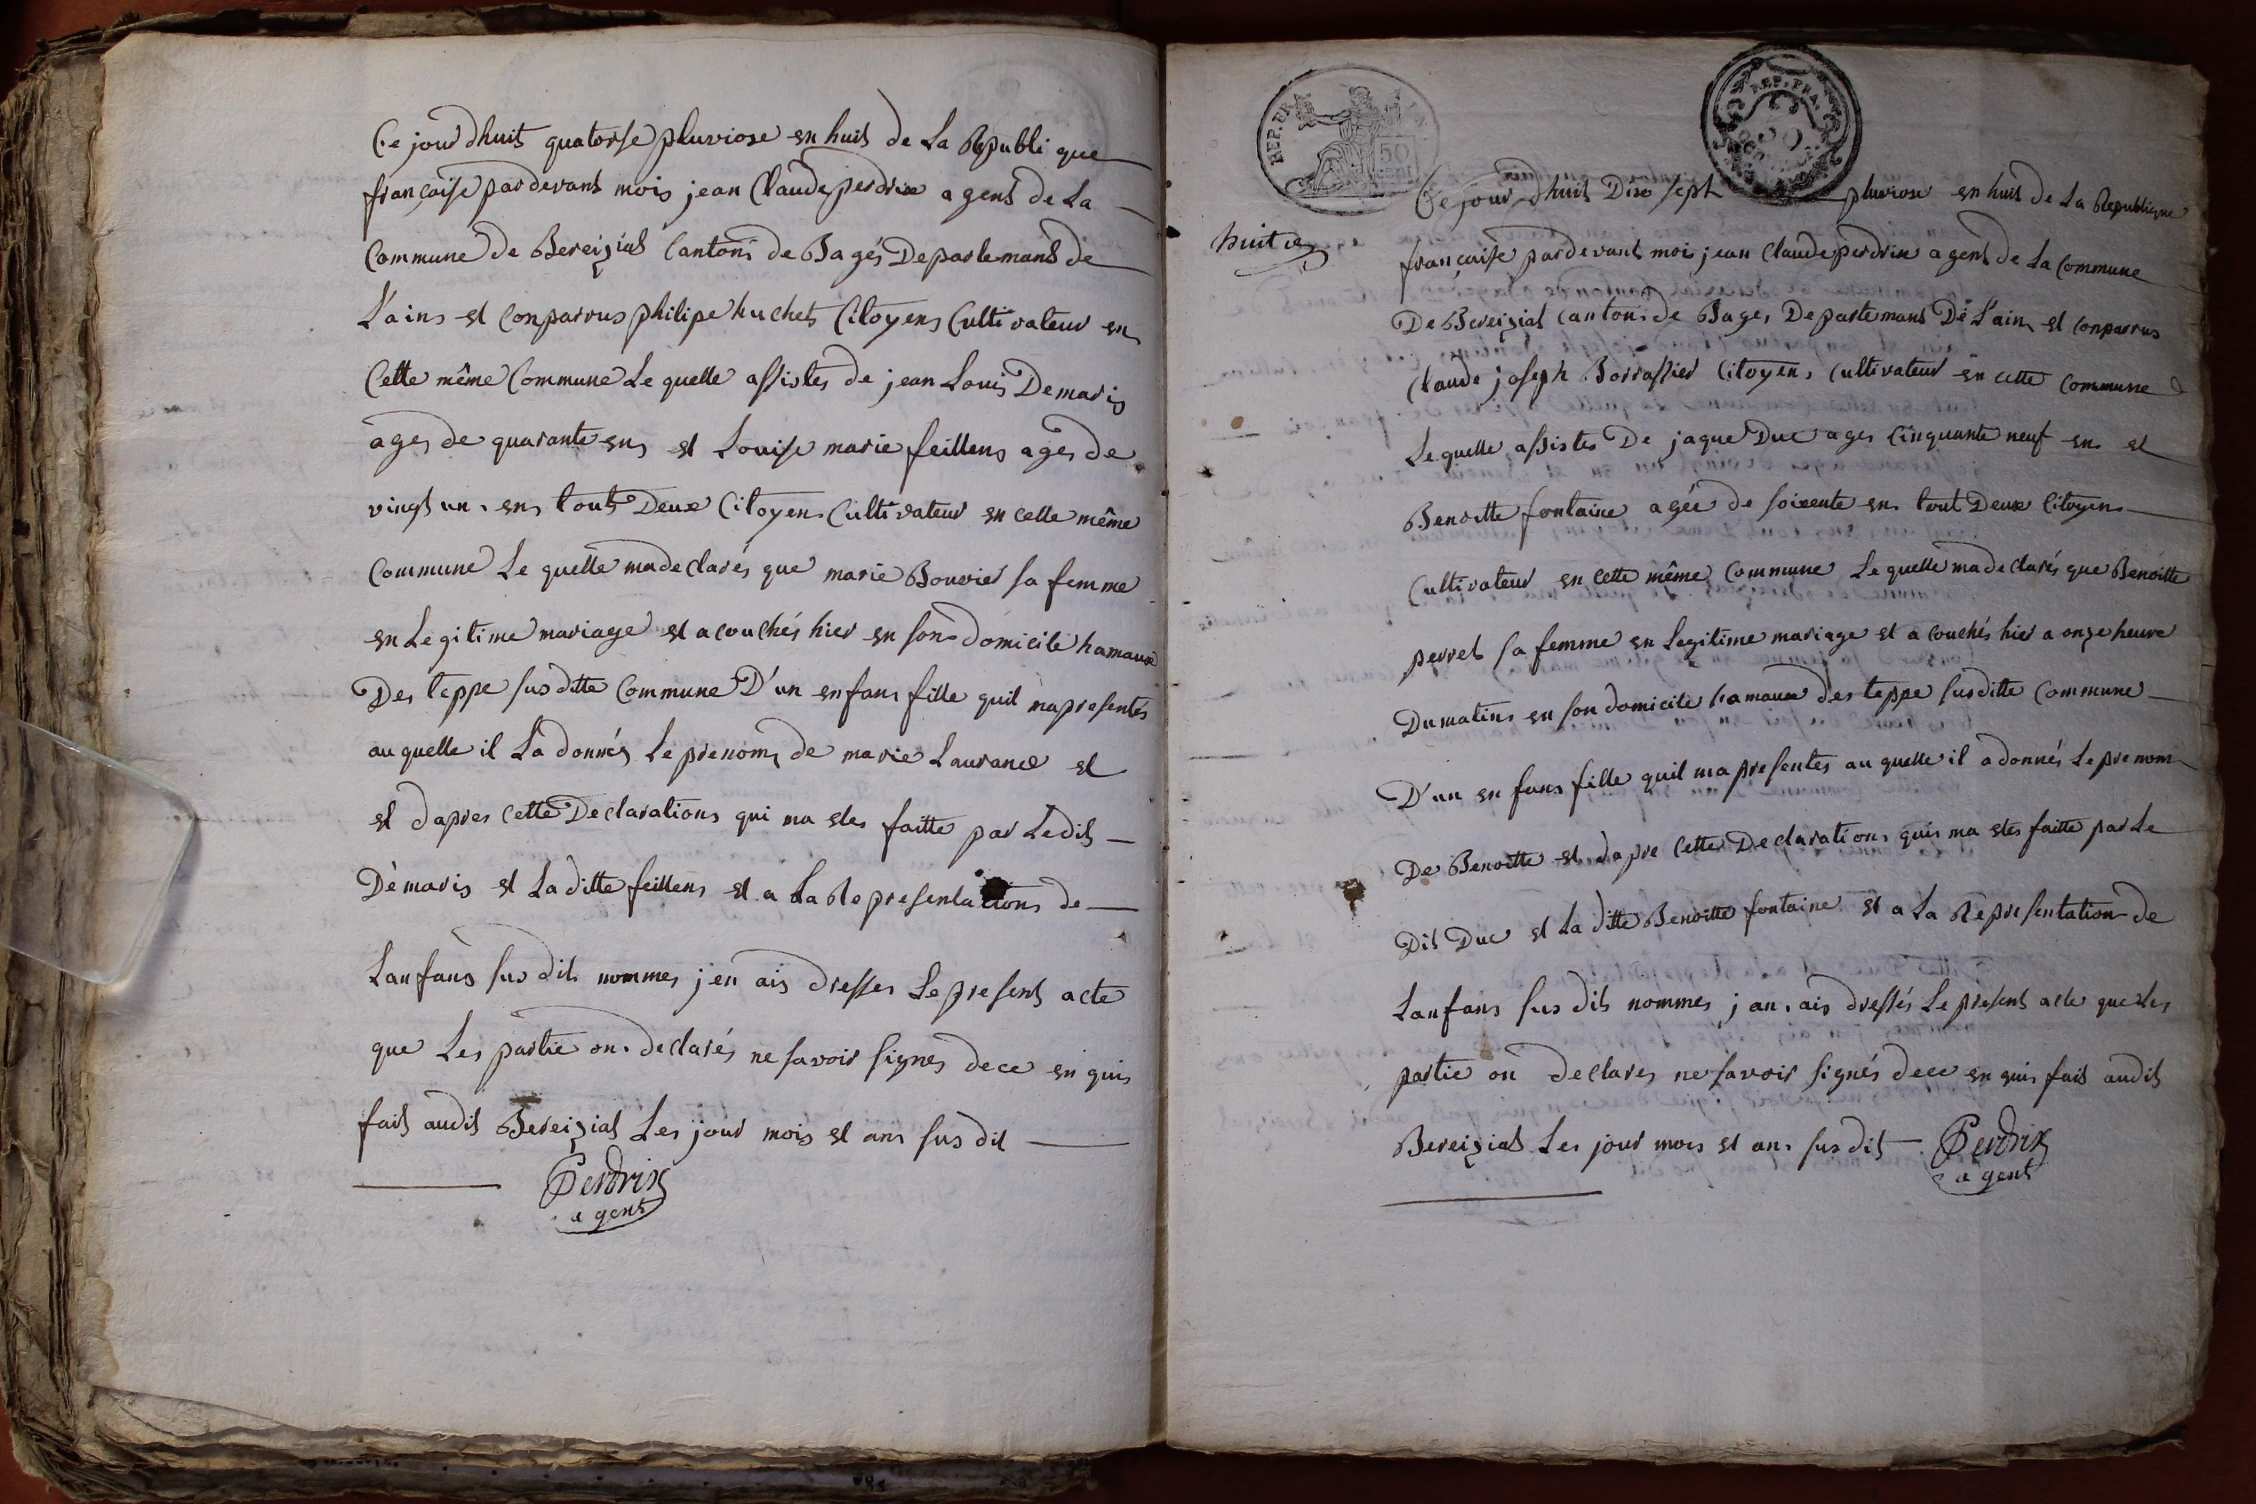 Ce jourdhuit quatorse pluviose en huit de La Republi que
française pardevant mois jean Claude perdrix agent de La
Commune de Bereiziat Cantons de Bagés Departemant de
L'ains et Conparrus philipe huchet Citoyens Cultivateur en
Cette même Commune Le quelle assistes de jean Louis Demaris
ages de quarante ens et Louise marie feillens ages de
vingt un ens touts Deux Citoyens Cultivateur en cette même
Commune Le quelle madeclarés que marie Bouvier sa femme
en Legitime mariage et acouchés hier en son domicile hamaux
Des teppe susditte Commune D'un enfans fille quil mapresentés
auquelle il La donnés Le prenoms de marie Laurance et
et dapres Cette Declarations qui ma etes faitte par Ledit
Dèmaris et La ditte feillens et a La Representations de
Lanfans susdit nommes jen ais dresses Le present acte
que Les partie on declarés ne savoir signes dece en quis
fait audit Bereiziat Les jour mois et ans susdit
Perdrix
agent
REP. FRA.
50
CENT
REP. FRA.
huit
Ce jourdhuit Dix sept pluviose en huit de La Republique
française pardevant moi jean Claude perdrix agent de La Commune
De Bereiziat Cantons de Bages Departemant De L'ain et Conparrus
Claude joseph Borrassier Citoyens Cultivateur en cette Commune
Le quelle assistes De jaque Duc ages Cinquante neuf en et
Benoitte fontaine agée de soixente en tout Deux Citoyens
Cultivateur en Cette même Commune Le quelle madeclarés que Benoitte
perret sa femme en Legitime mariage et a couchés hier a onze heure
Dumatins en son domicile hamaux des teppe susditte Commune
D'un en fans fille quil mapresentés auquelle il adonnés Le prenom
De Benoitte et dapre Cette Declarations quis ma etes faitte par Le
Dit Duc et La ditte Benoitte fontaine et a La Representation de
Lanfans susdit nommes jan ais dressés Le present acte que Les
partie on declares ne savoir signés dece en quis fait audit
Bereiziat Les jour mois et ans susdit
Perdrix
agent